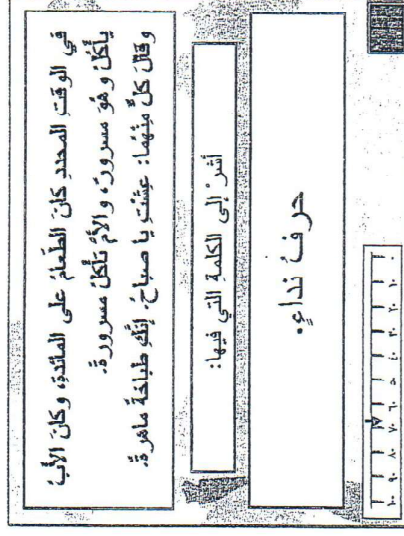 في الوقتِ المحددِ كانَ الطعامُ على المائدةِ، وكانَ الأبُ
يأكلُ وهوَ مسرورٌ، والأمُّ تأكلُ مسرورةً.
وقالَ كلٌّ مِنْهُما: عِشْتِ يا صباحُ. إنَّكِ طباخةٌ ماهرةٌ.
أشرْ إلى الكلمةِ التي فيها:
حرفُ نداءٍ.
١٠٠ ٩٠ ٨٠ ٧٠ ٦٠ ٥٠ ٤٠ ٣٠ ٢٠ ١٠ ٠